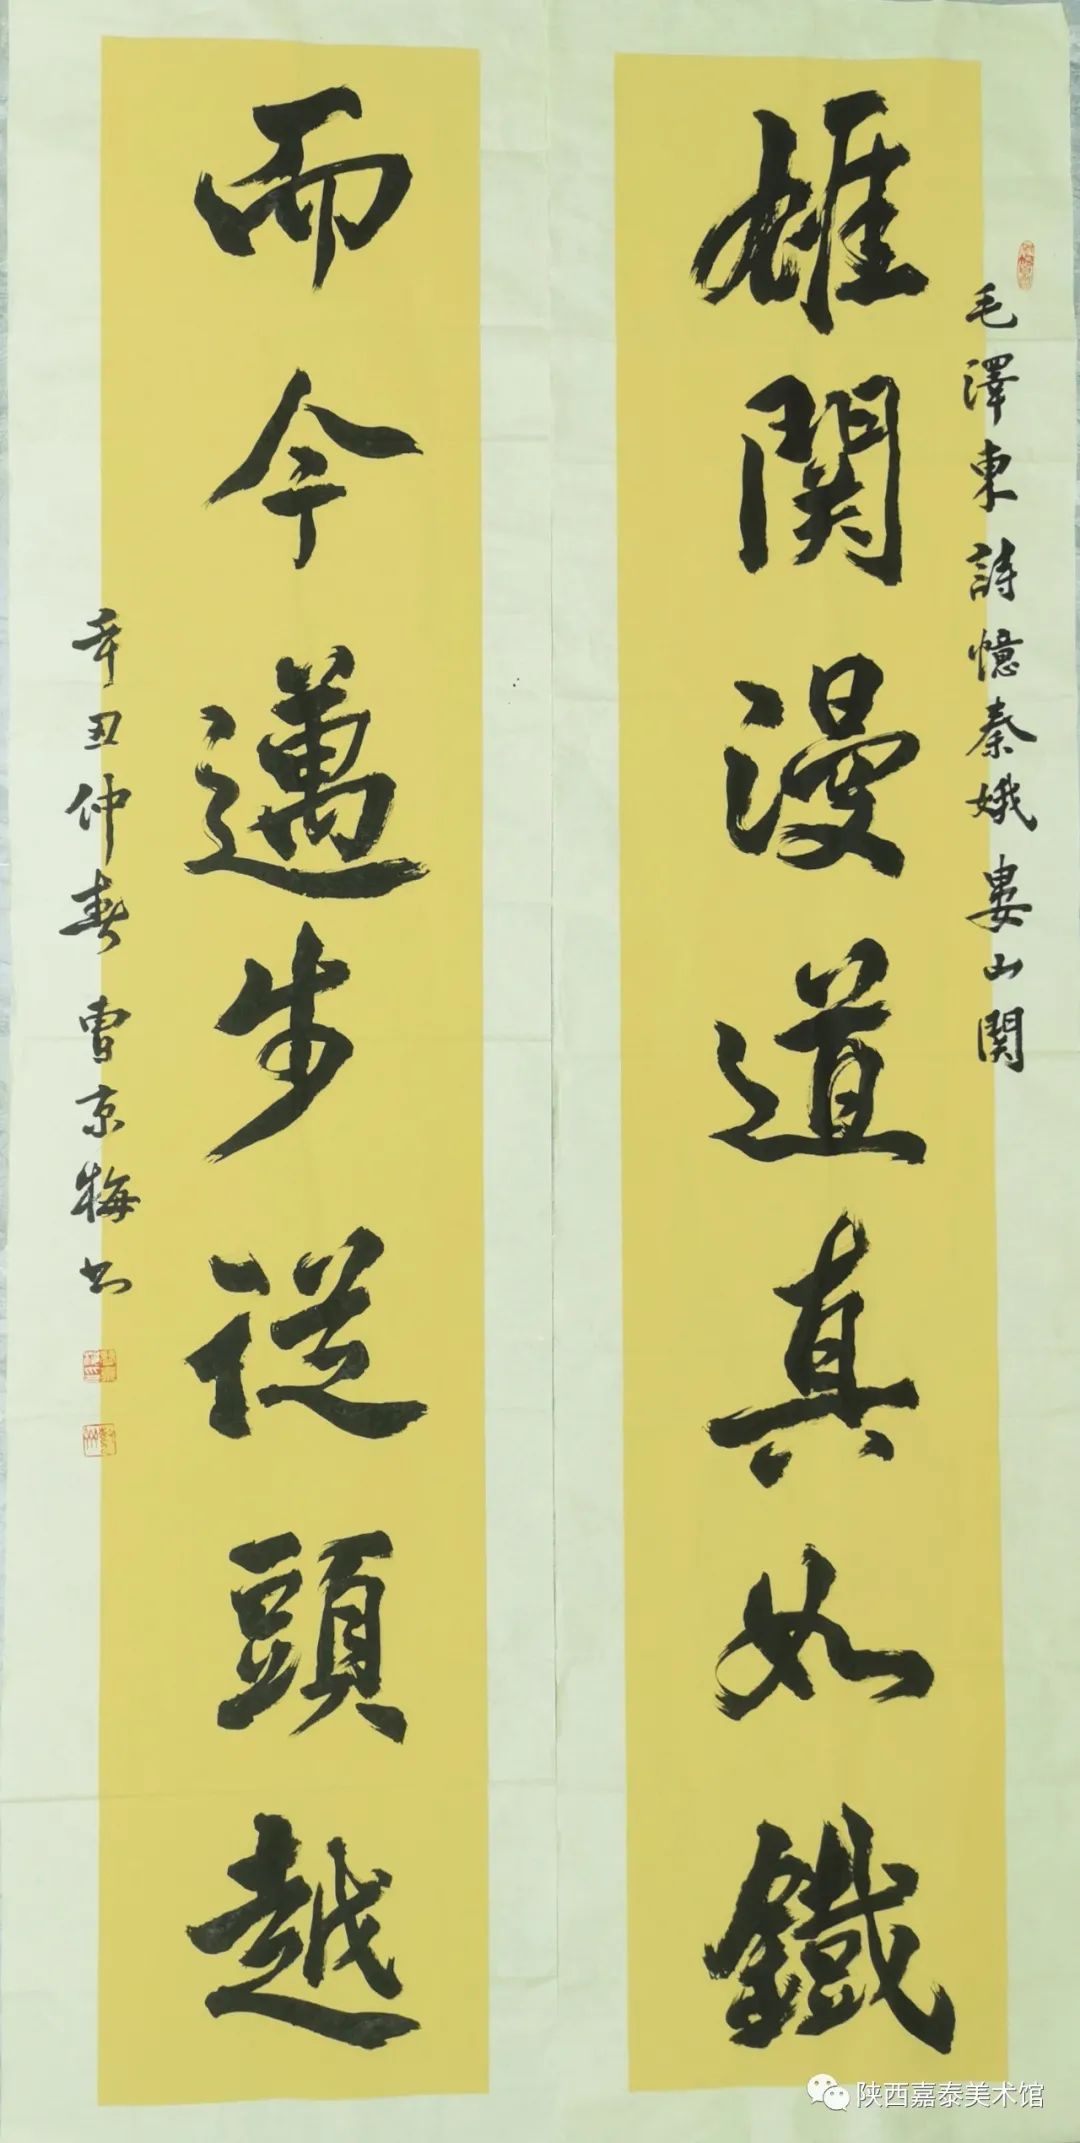 毛澤東詩憶秦娥婁山関
雄関漫道真如鐵
而今邁步從頭越
辛丑仲春曹京梅书
陕西嘉泰美术馆